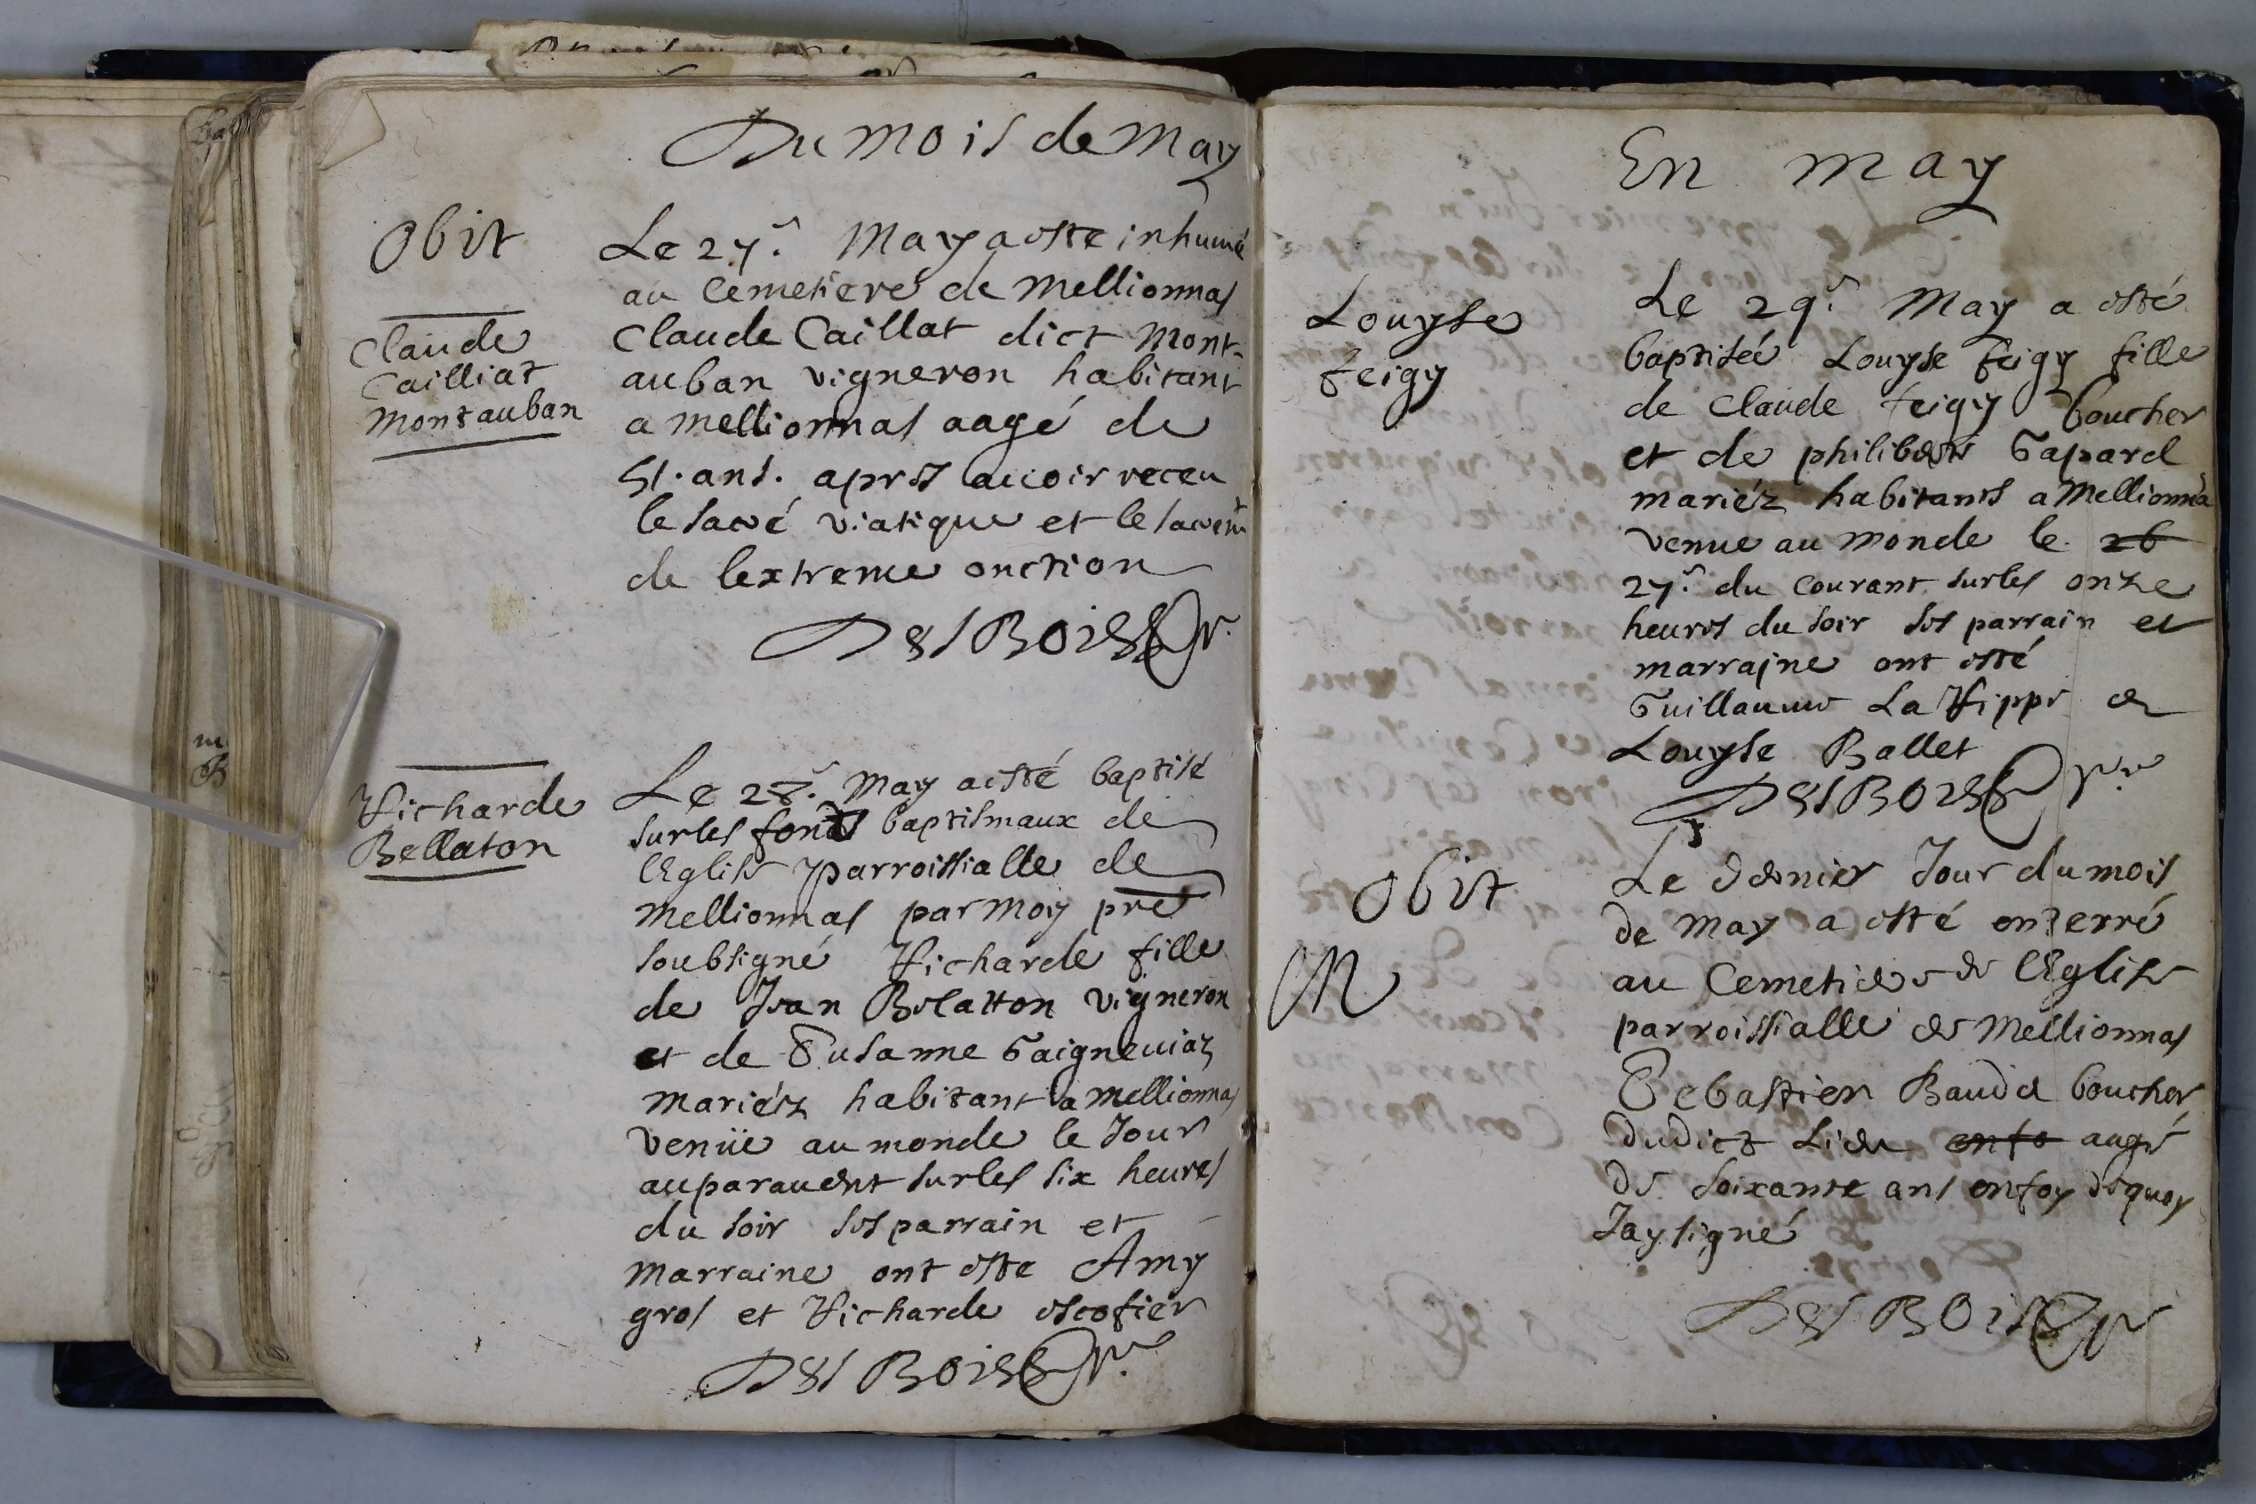 Du mois de may
Obit
Claude
Cailliat
montauban
Le 27e. May a este inhumé
au Cemetiere de Mellionnas
Claude Caillat dict Mont-
auban vigneron habitant
a mellionnas aagé de
51. ans. apres auoir receu
le sacré viatique et le sacremt
de lextreme onction
DesBois pr.
Richarde
Bellaton
Le 28e. May a esté baptisé
sur les fonds baptismaux de
lEglise parroissialle de
Mellionnas par moy pre
soubsigné Richarde fille
de Jean Belatton vigneron
et de Susanne Gaigneuiaz
mariéz habitant a mellionnas
venüe au monde le Jour
auparauent sur les six heures
du soir ses parrain et
marraine ont este Amy
gros et Richarde escofier
DesBois pr.
En may
Louyse
feigy
Le 29e. May a esté
baptisée Louyse feigy fille
de Claude feigy boucher
et de philiberte Gapard
mariéz habitants a Mellionna
venue au monde le 26
27e. du courant sur les onze
heures du soir ses parrain et
marrajne ont esté
Guillaume La Rippe et
Louyse Ballet
DesBois pr.
Obit
M
Le dernier Jour du mois
de May a esté enterré
au Cemetiere de lEglise
parroissialle de Mellionnas
Sebastien Baudet boucher
dudict Lieu enfo aagé
de soixante ans en foy dequoy
Jay signé
DesBois pr